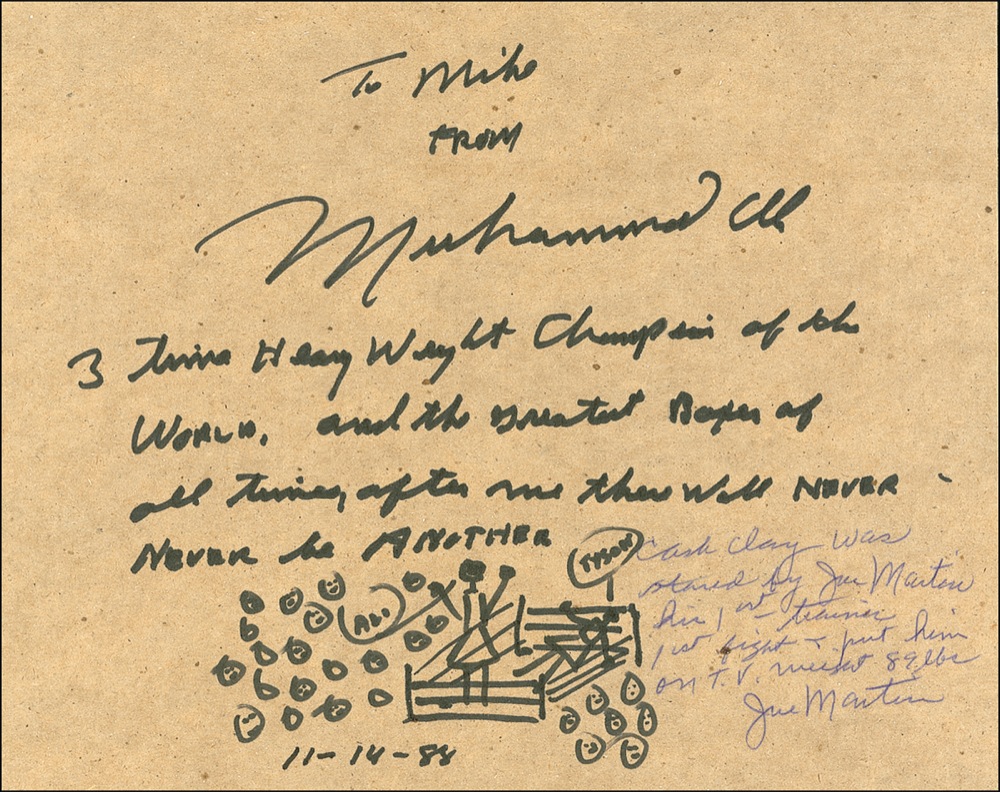 To Mike
FROM
Muhammad Ali
3 Time Heavy Weight Champion of the
WORLD, and the greatest Boxer of
all times, after me there Will NEVER -
NEVER be ANOTHER
TYSON
ALI
11-14-88
Cash Clay was
stared by Joe Martin
his 1st trainer
1st fight & put him
on T.V. 89 lbs
Joe Martin